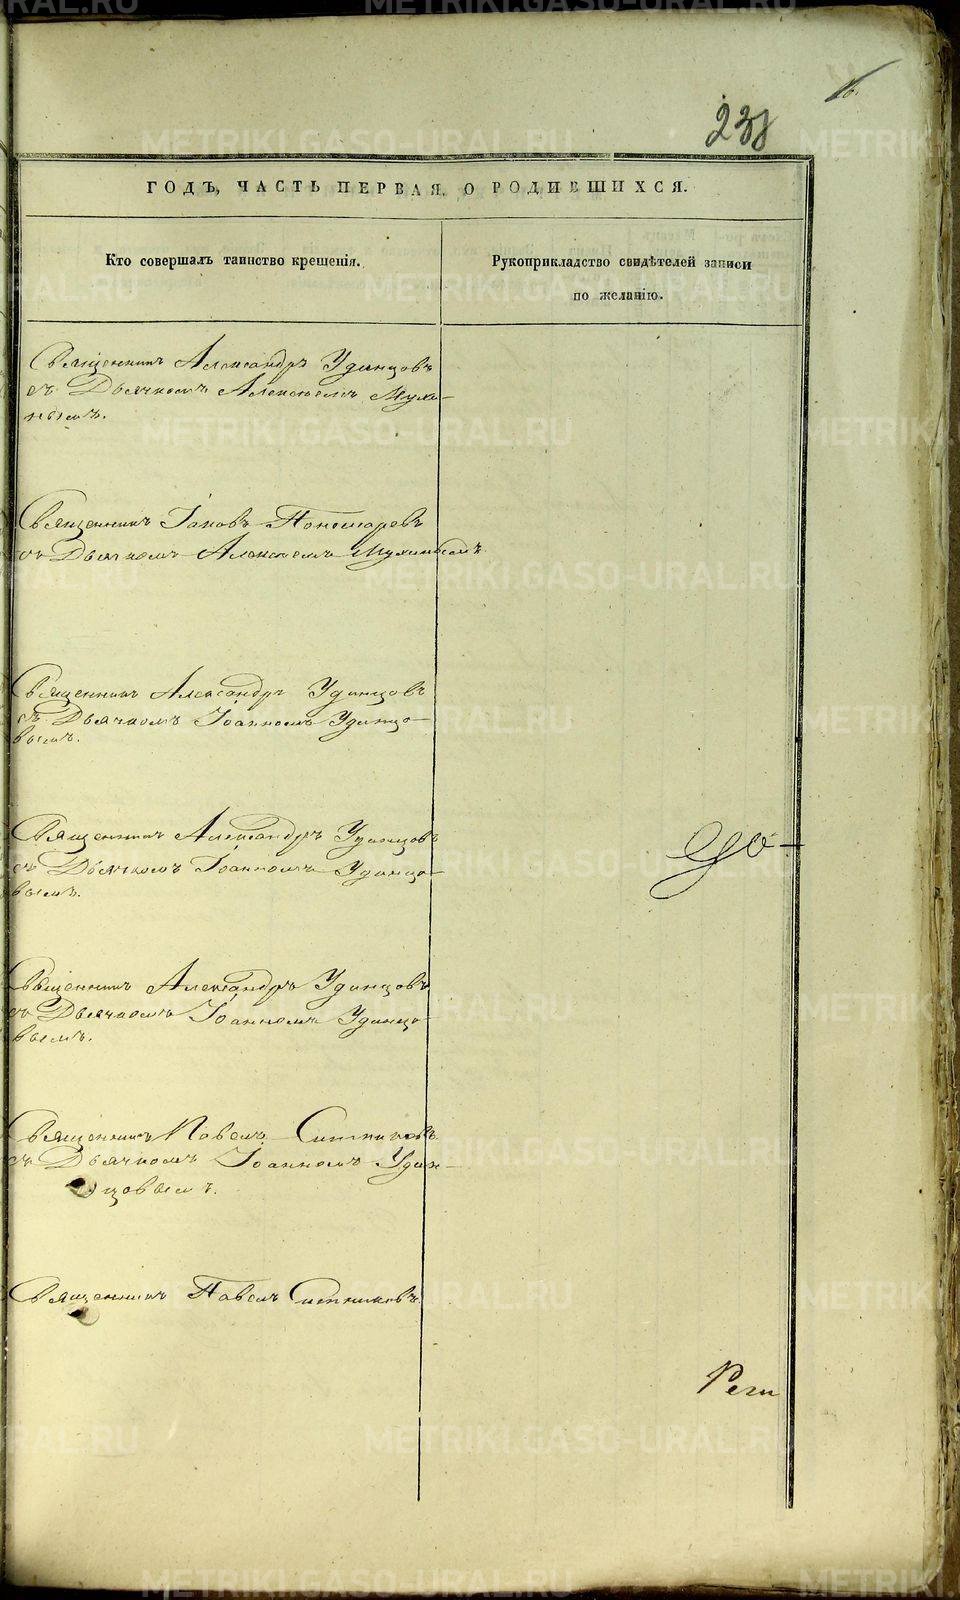 238
ГОДЪ, ЧАСТЬ ПЕРВАЯ, О РОДИВШИХСЯ.
Кто совершалъ таинство крещенія.
Рукоприкладство свидѣтелей записи
по желанію.
Священникъ Александръ Удинцовъ
съ Дьячкомъ Алексѣемъ Мухи-
нымъ.
Священникъ Іаковъ Пономаревъ
съ Дьячкомъ Алексѣемъ Мухинымъ
Священникъ Александръ Удинцовъ
съ Дьячкомъ Іоанномъ Удинцо-
вымъ.
Священникъ Александръ Удинцовъ
съ Дьячкомъ Іоанномъ Удинцо-
вымъ.
До-
Священникъ Александръ Удинцовъ
съ Дьячкомъ Іоанномъ Удинцо-
вымъ.
Священникъ Павелъ Ситниковъ
съ Дьячкомъ Іоанномъ Удин-
цовымъ.
Священникъ Павелъ Ситниковъ.
METRIKI.GASO-URAL.RU